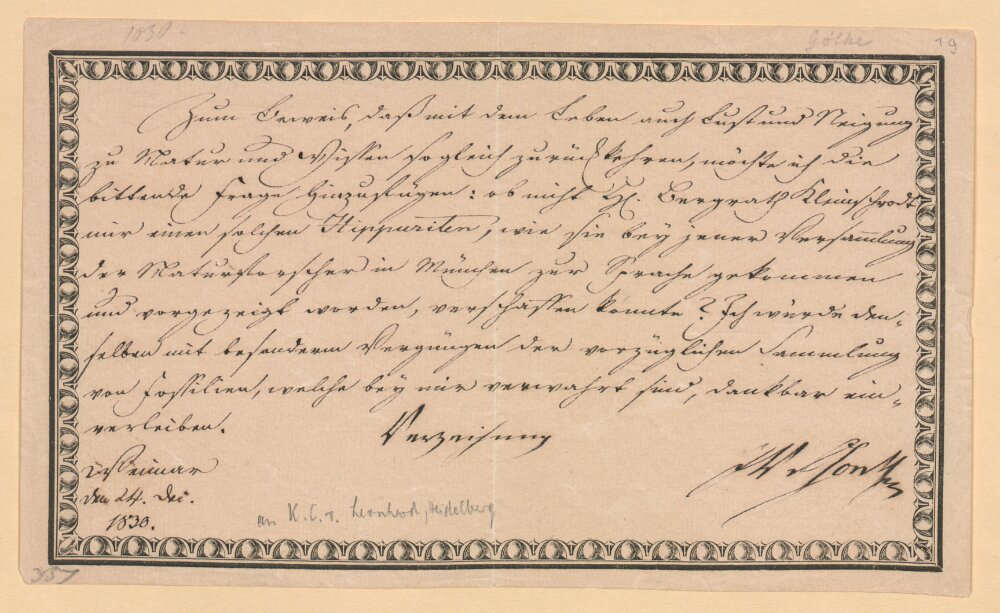 1830 -
19
Zum Beweis, daß mit dem Leben auch Lust und Neigung
zu Natur und Wissen sogleich zurück kehren, möchte ich die
bittende Frage hinzufügen: ob nicht H. Bergrath Kleinschrodt
mir einen solchen Hippuriten, wie sie bey jener Versammlung
der Naturforscher in München zur Sprache gekommen
und vorgezeigt worden, verschaffen könnte? Ich würde den-
selben mit besonderm Vergnügen der vorzüglichen Sammlung
von Fossilien, welche bey mir verwahrt sind, dankbar ein-
verleiben.
Verzeihung
Weimar
JWvGoethe
den 24. Dec.
1830.
an K. C. v. Leonhard, Heidelberg